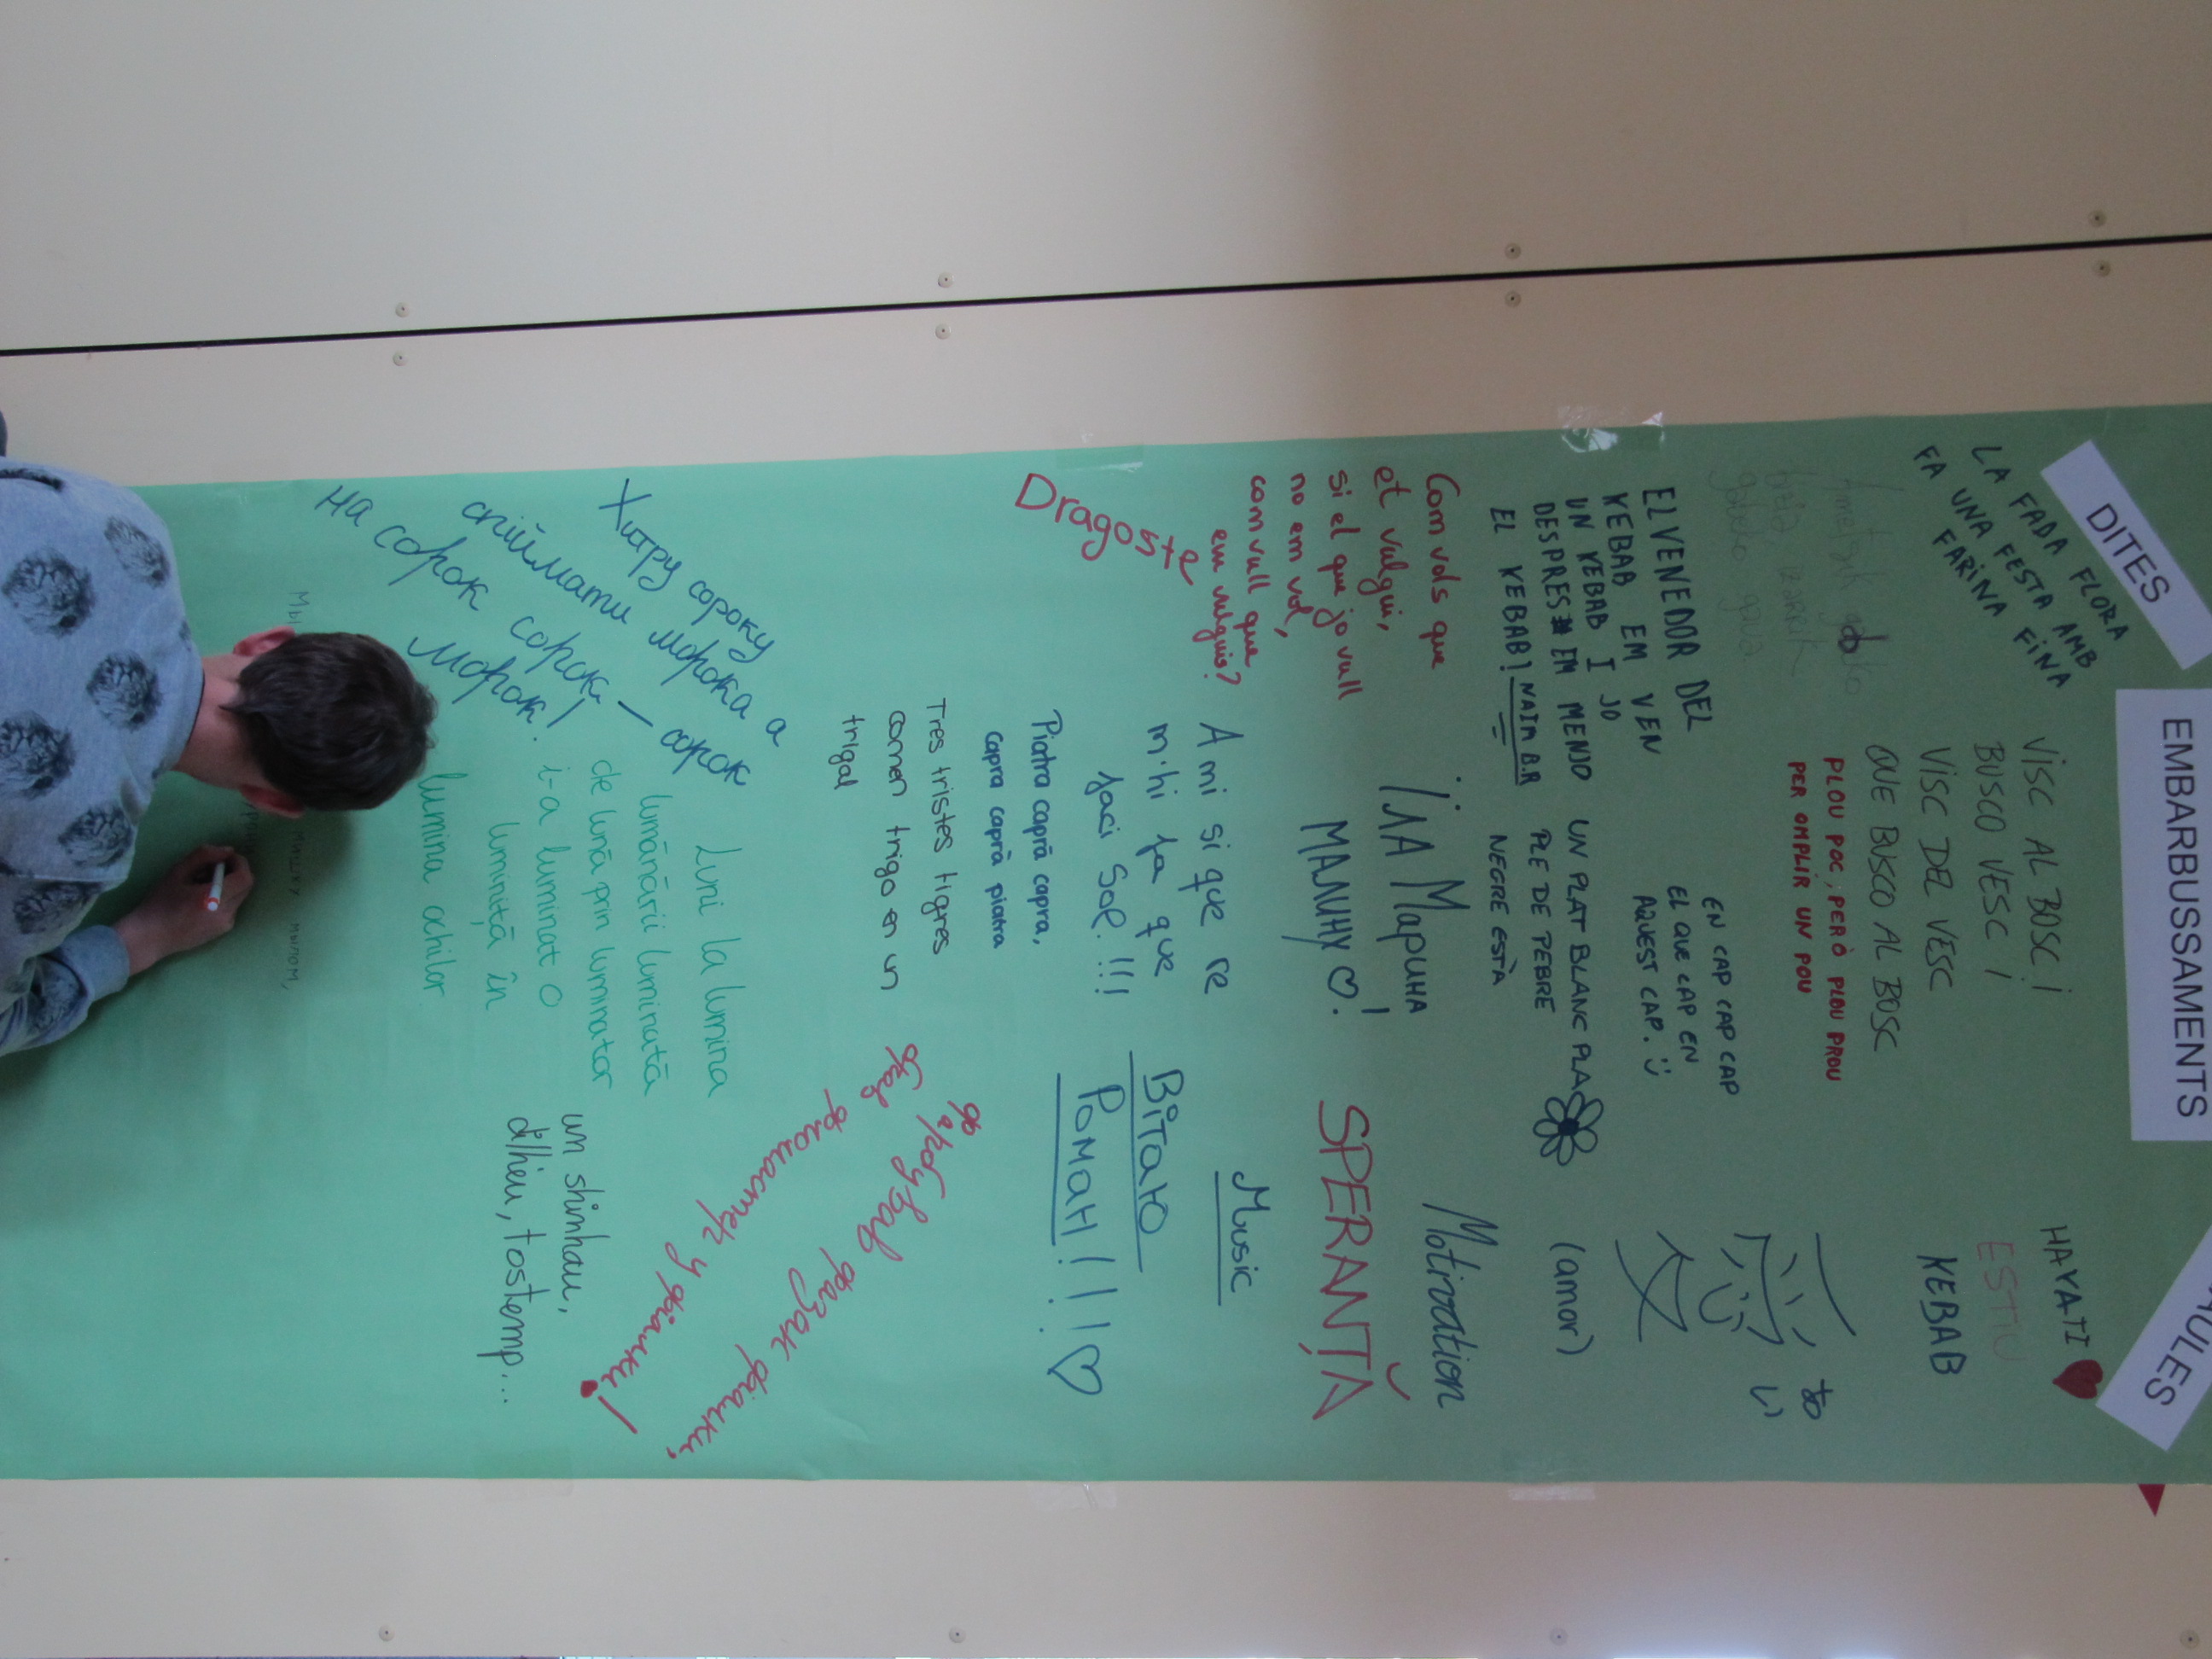 DITES
EMBARBUSSAMENTS
LA FADA FLORA
FA UNA FESTA AMB
FARINA FINA
VISC AL BOSC I
BUSCO VESC I
VISC DEL VESC
QUE BUSCO AL BOSC
HAYATI
ESTIU
KEBAB
PLOU POC, PERÒ PLOU PROU
PER OMPLIR UN POU
EL VENEDOR DEL
KEBAB EM VEN
UN KEBAB I JO
DESPRES EM MENJO
EL KEBAB! NAIM B.R
EN CAP CAP CAP
EL QUE CAP EN
AQUEST CAP.
UN PLAT BLANC PLA
PLE DE PEBRE
NEGRE ESTÀ
(amor)
Com vols que
et vulgui,
si el que jo vull
no em vol,
com vull que
em vulguis?
ЇЛА Марина
МАЛИНУ!
Motivation
SPERANȚĂ
Dragoste
A mi si que re
m'hi fa que
faci Sol!!!
Music
Вітаю
Роман!!!
Piatra capră capra,
capra capră piatra
Tres tristes tigres
comen trigo en un
trigal
Хитру сороку
спіймати морока а
на сорок сорок – сорок
морок!
Luni la lumina
lumânării luminată
de lună prin luminator
i-a luminat o
luminiță în
lumina ochilor
фазан фіалки,
у фіалки!
un shinhau,
d'hieu, tostemp...
Мы
мылом,